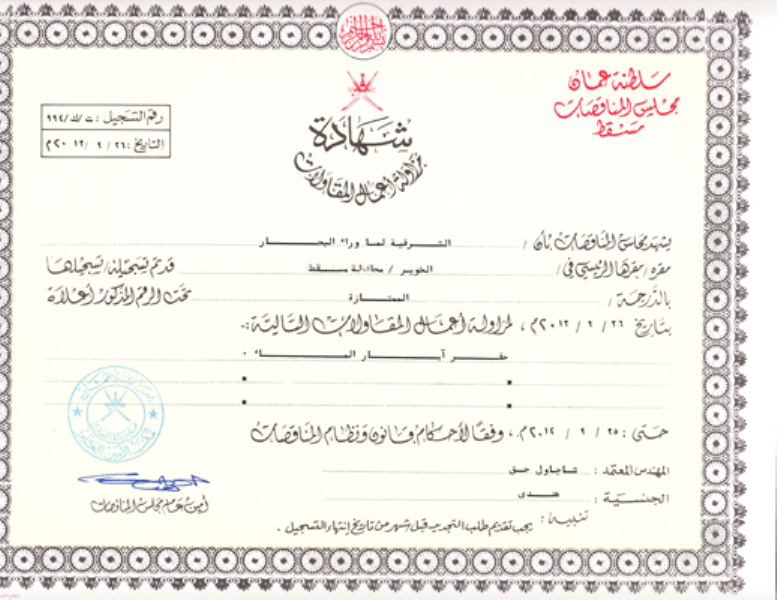 سلطنة عمان
مجلس المناقصات
مسقط
رقم التسجيل : ت/ك/٩٩٤
التاريخ : ٢٦ / ٩ / ٢٠١٢م
شهادة
مزاولة أعمال المقاولات
يشهد مجلس المناقصات بأن / الشرقية لما وراء البحار
مقره / مقرها الرئيسي في / الخوير / محافظة مسقط قد تم تسجيله / تسجيلها
بالدرجة / الممتازة تحت الرقم المذكور أعلاه
بتاريخ ٢٦ / ٩ / ٢٠١٢م ، لمزاولة أعمال المقاولات التالية :-
حفر آبار الماء ٠
حتى : ٢٥ / ٩ / ٢٠١٤م ، وفقا لأحكام قانون ونظام المناقصات
المهندس المعتمد : شاجاول حق
الجنسية : هندى
أمين عام مجلس المناقصات
تنبيه : يجب تقديم طلب التجديد قبل شهر من تاريخ إنتهاء التسجيل .